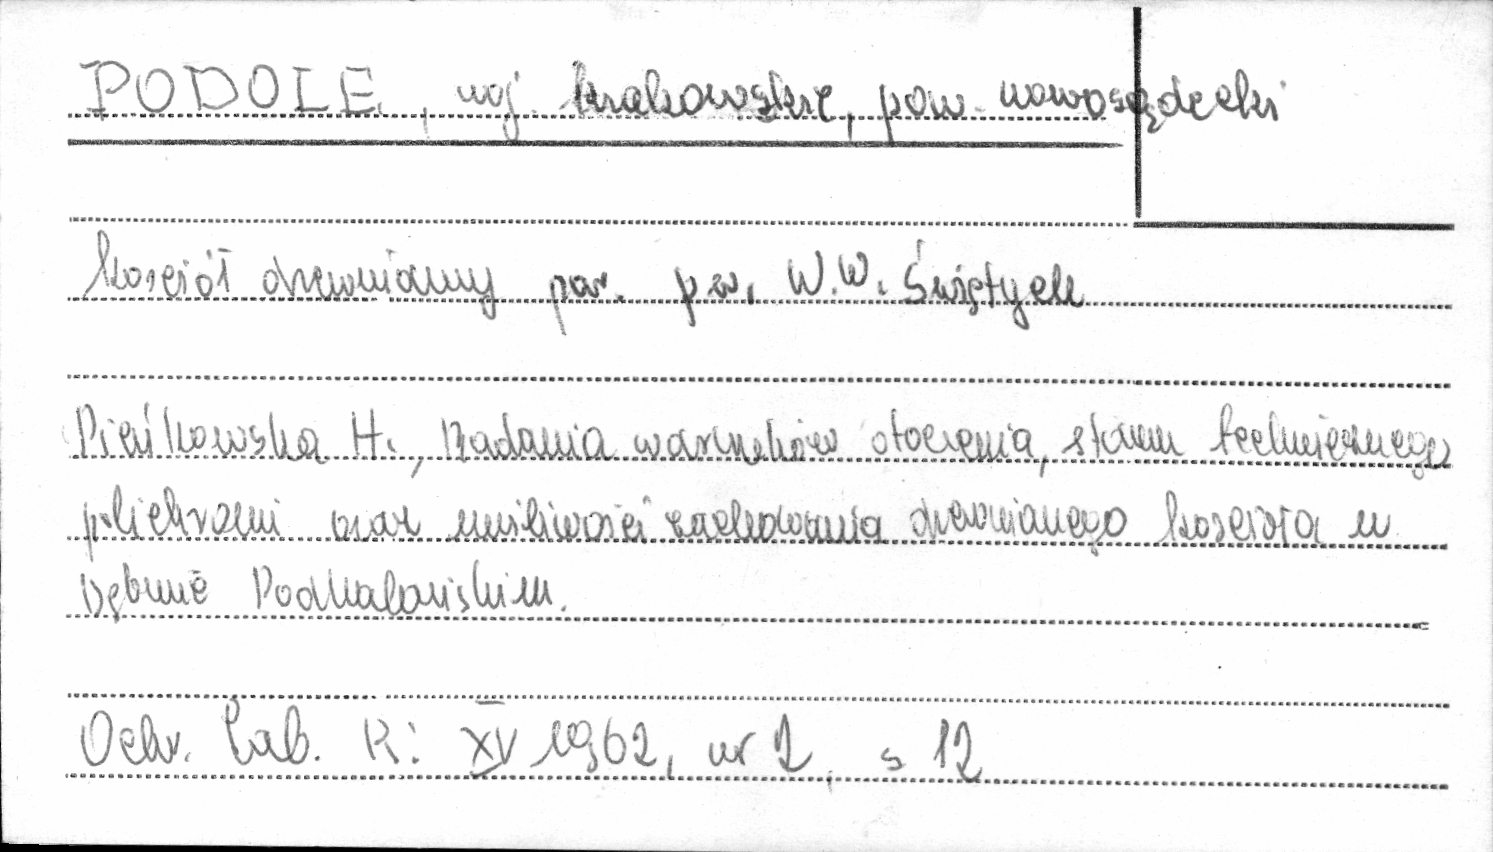 PODOLE, woj. krakowskie, pow. nowosądecki
kościół drewniany par. p.w. W.W. Świętych
Pieńkowska H., Badania warunków otoczenia, stanu technicznego
polichromii oraz możliwości zachowania drewnianego kościoła w
Dębnie Podhalańskim.
Ochr. Zab. R: XV 1962, nr 2, s 12